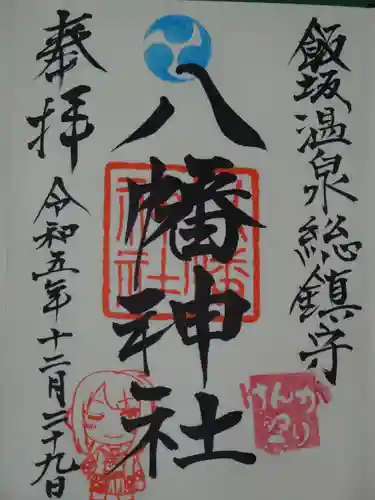 飯坂温泉総鎮守
八幡神社
けんか
祭り
奉拝
令和五年十二月二十九日